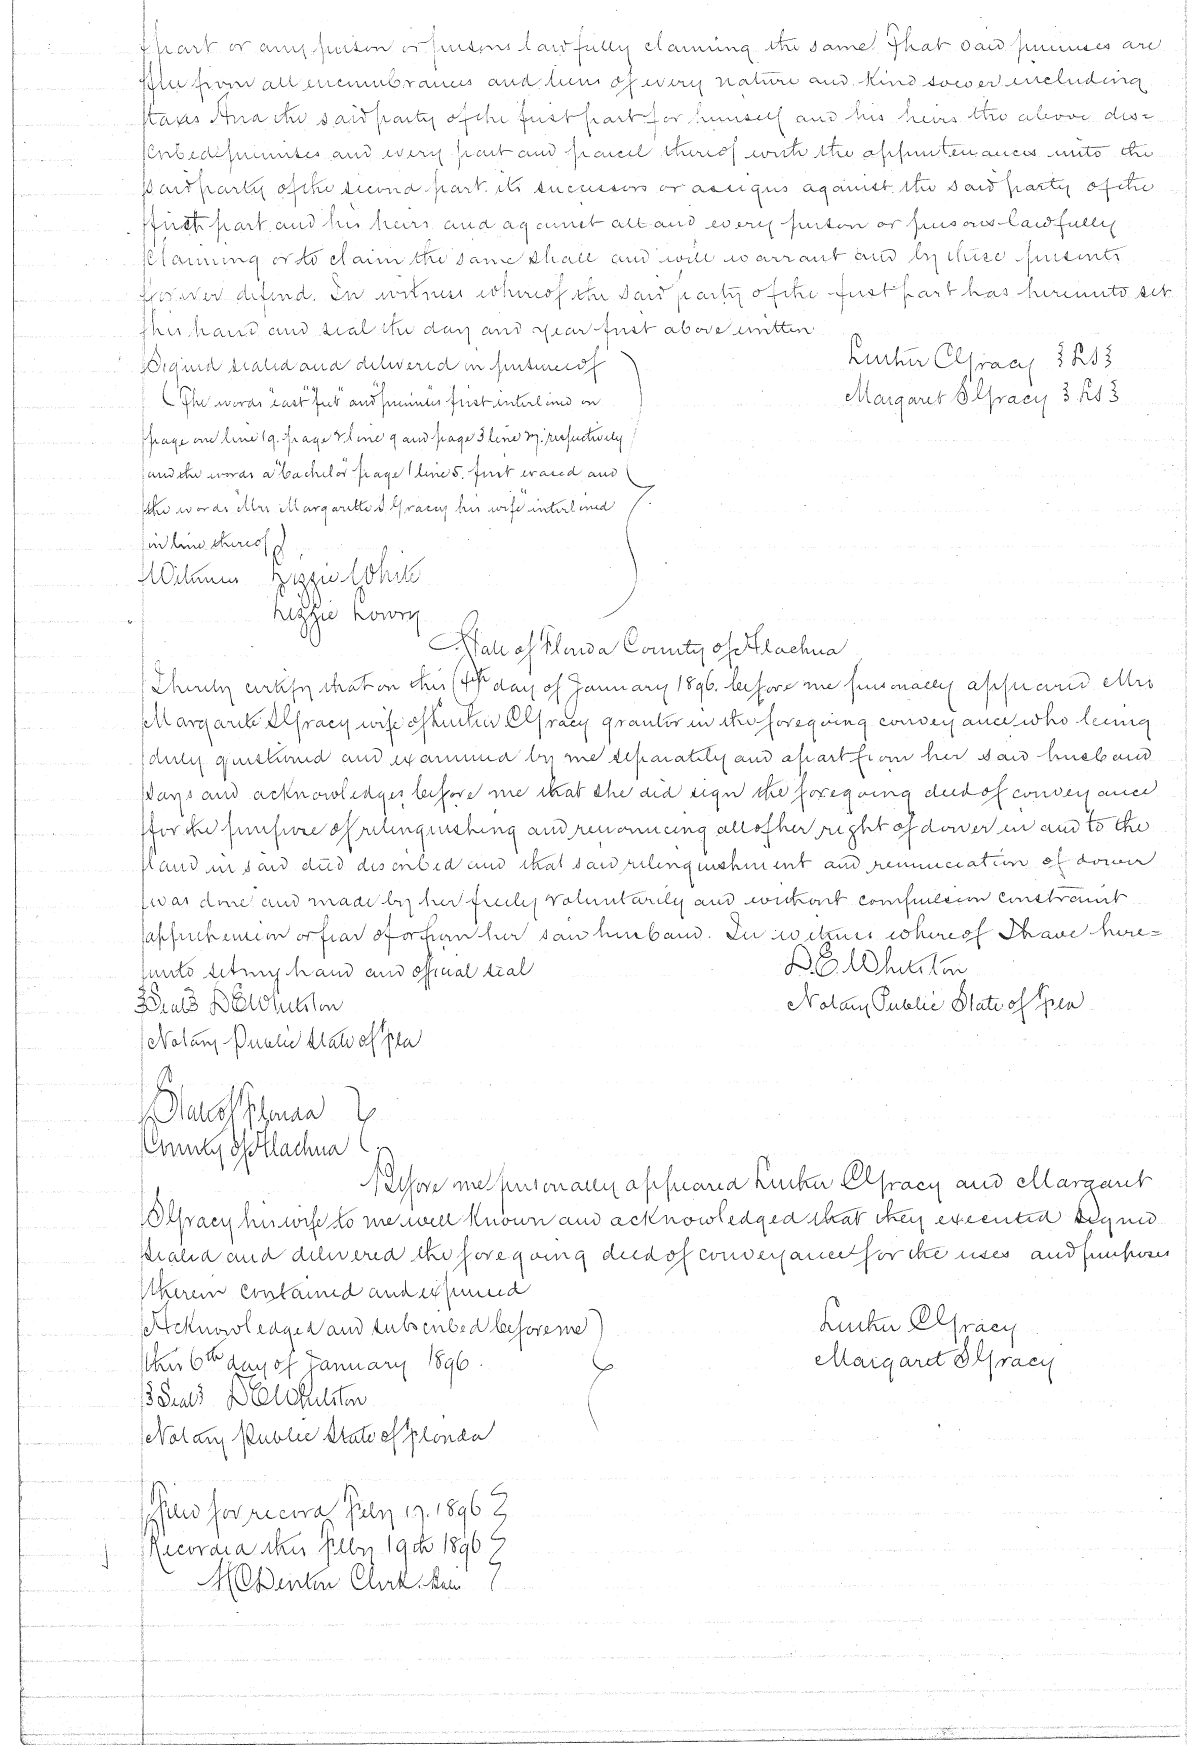 part or any person or persons lawfully claiming the same That said premises are
free from all encumbrances and liens of every nature and Kind soever including
taxes And the said party of the first part for himself and his heirs the above des=
cribed premises and every part and parcel thereof with the appurtenances unto the
said party of the second part its successors or assigns against the said party of the
first part and his heirs and against all and every person or persons lawfully
claiming or to claim the same shall and will warrant and by these presents
forever defend. In witness whereof the said party of the first part has hereunto set
his hand and seal the day and year first above written
Signed sealed and delivered in presence of
Luther C Gracy {LS}
Margaret S Gracy {LS}
(The words "east" "feet" and "premises" first interlined on
page one line 19. page 2 line 9 and page 3 line 27. respectively
and the words a "bachelor" page 1 line 5. first erased and
the words "Mrs Margarette S Gracy his wife" interlined
in line thereof)
Witness Lizzie White
Lizzie Lowry
State of Florida County of Alachua
I hereby certify that on this (4th day of January 1896. before me personally appeared Mrs
Margarite S Gracy wife of Luther C Gracy grantor in the foregoing conveyance who being
duly questioned and examined by me separately and apart from her said husband
says and acknowledges before me that she did sign the foregoing deed of conveyance
for the purpose of relinquishing and renouncing all of her right of dower in and to the
land in said deed described and that said relinquishment and renunciation of dower
was done and made by her freely voluntarily and without compulsion constraint
apprehension or fear of or from her said husband. In witness whereof I have here=
unto set my hand and official seal
D. E. Whetston
{Seal} D E Whetston
Notary Public State of Fla
Notary Public State of Fla
State of Florida
County of Alachua
Before me personally appeared Luther C Gracy and Margaret
S Gracy his wife to me well Known and acknowledged that they executed signed
sealed and delivered the foregoing deed of conveyance for the uses and purposes
therein contained and expressed
Acknowledged and subscribed before me
Luther C Gracy
this 6th day of January 1896.
Margaret S Gracy
{Seal} D E Whetston
Notary Public State of Florida
Filed for record Feby 17. 1896
Recorded this Feby 19th 1896
H C Denton Clerk.